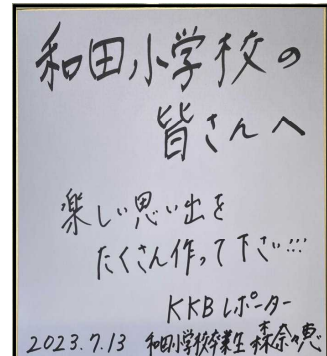 和田小学校の
皆さんへ
楽しい思い出を
たくさん作って下さい!!!
KKBレポーター
2023.7.13 和田小学校卒業生 森奈々恵